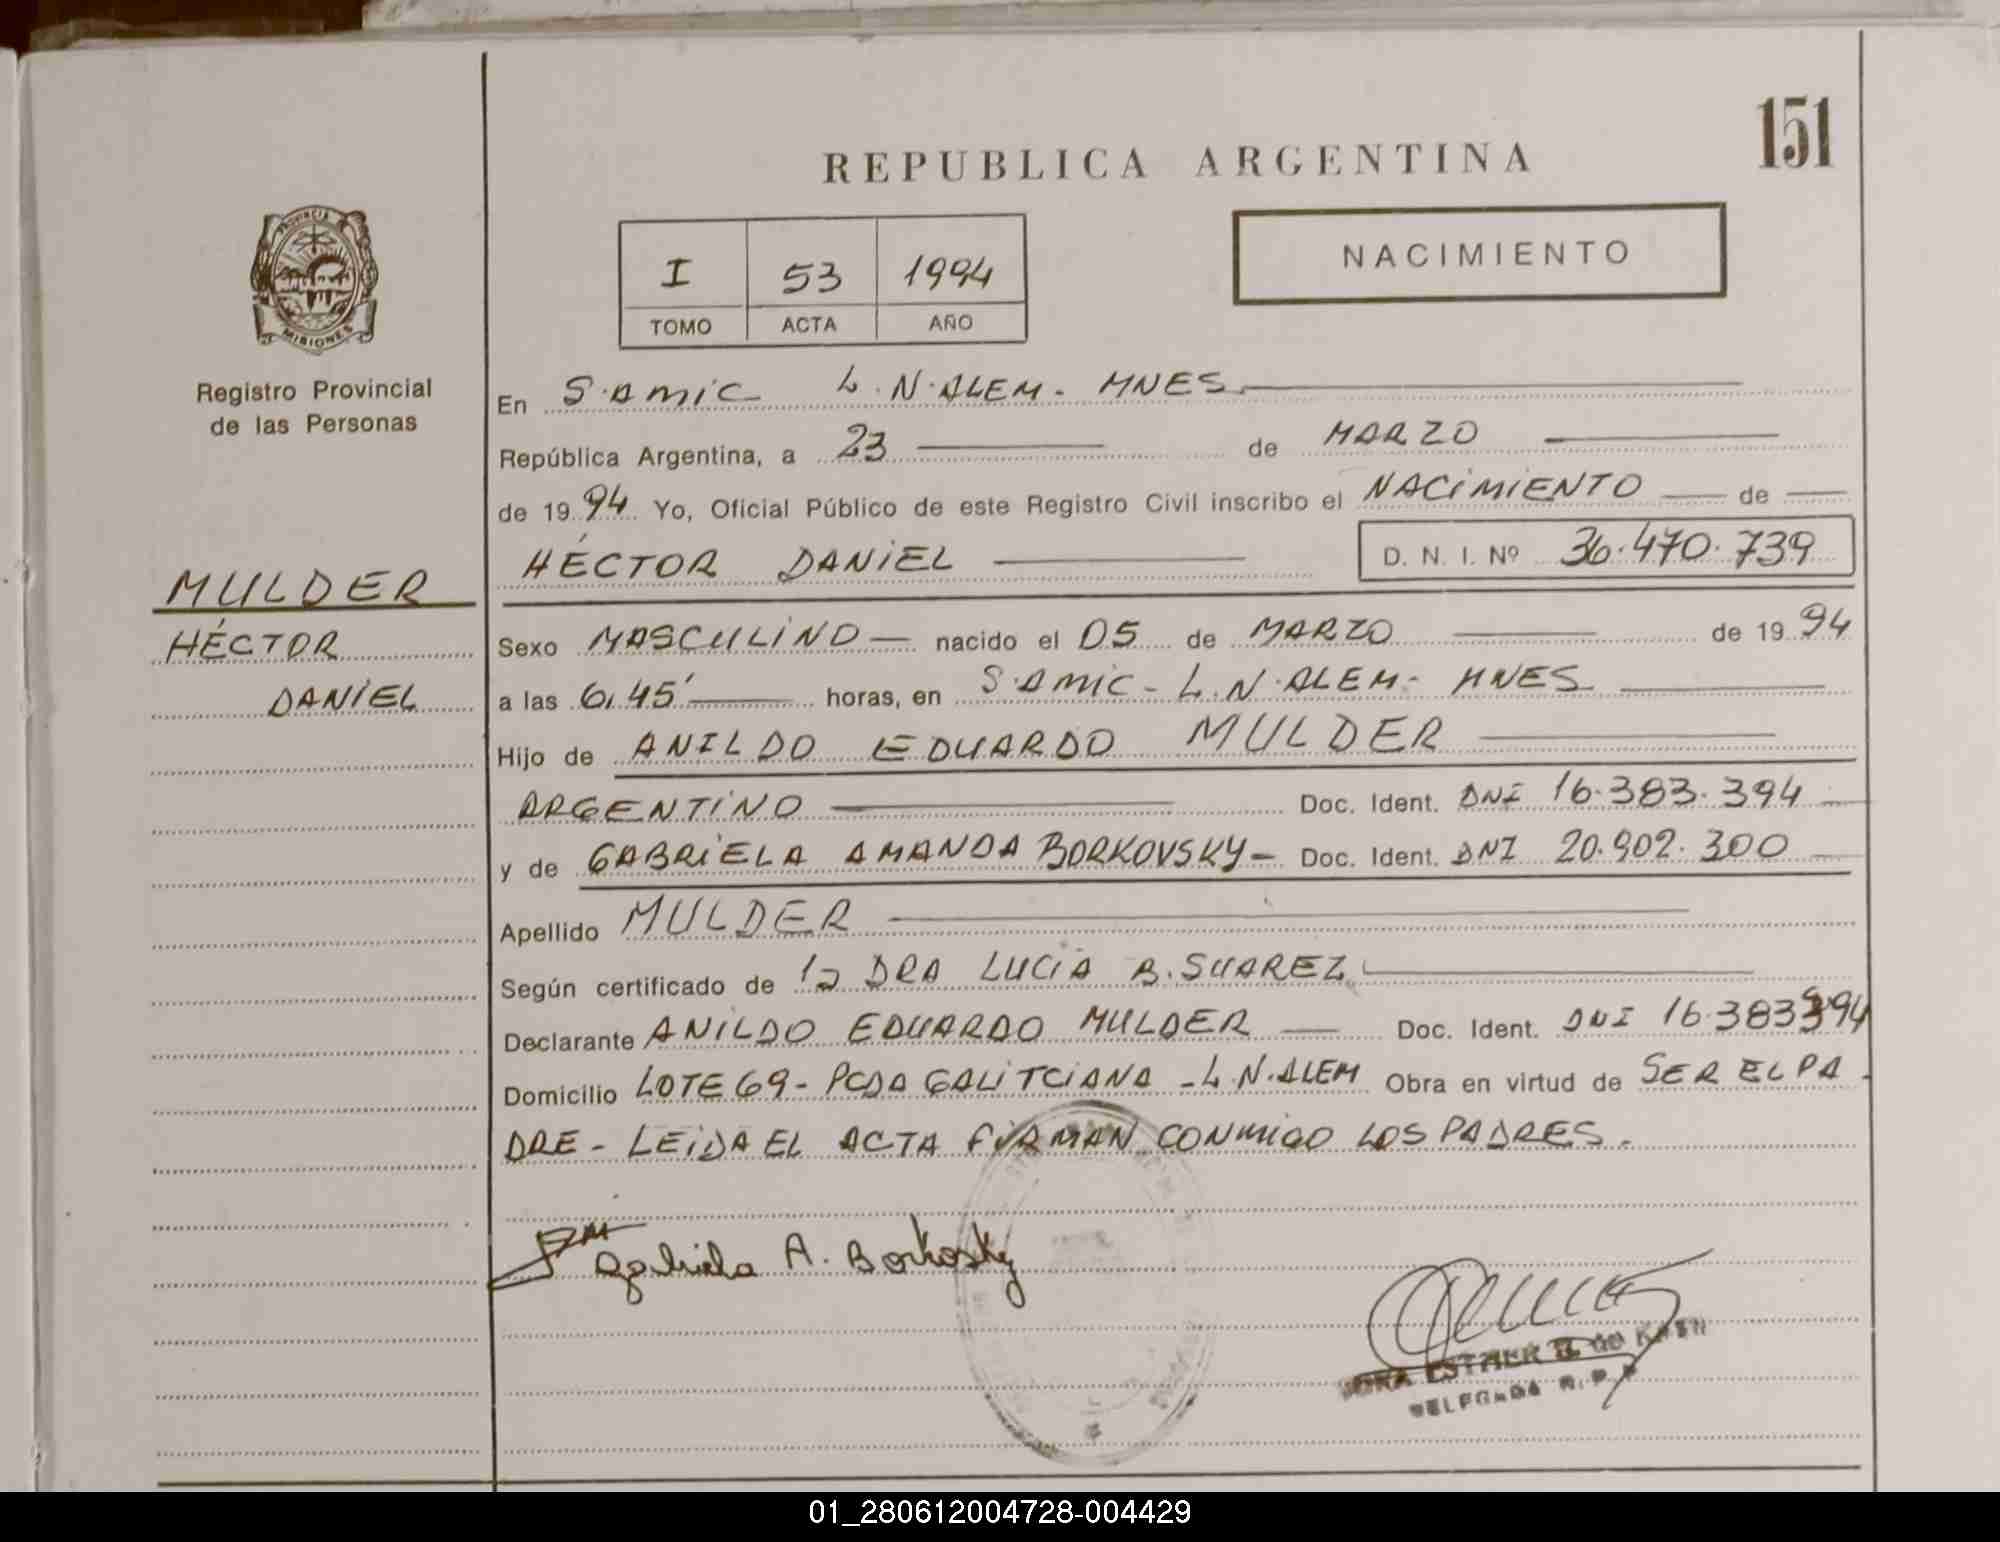 151
REPUBLICA ARGENTINA
PROVINCIA
MISIONES
NACIMIENTO
I 53 1994
TOMO ACTA AÑO
Registro Provincial
de las Personas
En S.AMIC L.N.ALEM- MNES
República Argentina, a 23 de MARZO
de 1994 Yo, Oficial Público de este Registro Civil inscribo el NACIMIENTO de
HÉCTOR DANIEL D. N. I. Nº 36.470.739
MULDER
HÉCTOR
DANIEL
Sexo MASCULINO nacido el 05 de MARZO de 1994
a las 6,45' horas, en S.AMIC - L.N.ALEM- MNES
Hijo de ANILDO EDUARDO MULDER
ARGENTINO Doc. Ident. DNI 16.383.394
y de GABRIELA AMANDA BORKOVSKY- Doc. Ident. DNI 20.902.300
Apellido MULDER
Según certificado de la DRA LUCIA B. SUAREZ
Declarante ANILDO EDUARDO MULDER Doc. Ident. DNI 16.383394
Domicilio LOTE 69- PCDA GALITCIANA -L.N.ALEM Obra en virtud de SER EL PA-
DRE - LEIDA EL ACTA FIRMAN CONMIGO LOS PADRES.
Gabriela A. Borkosky
DELEGADA R.P.P
01_280612004728-004429